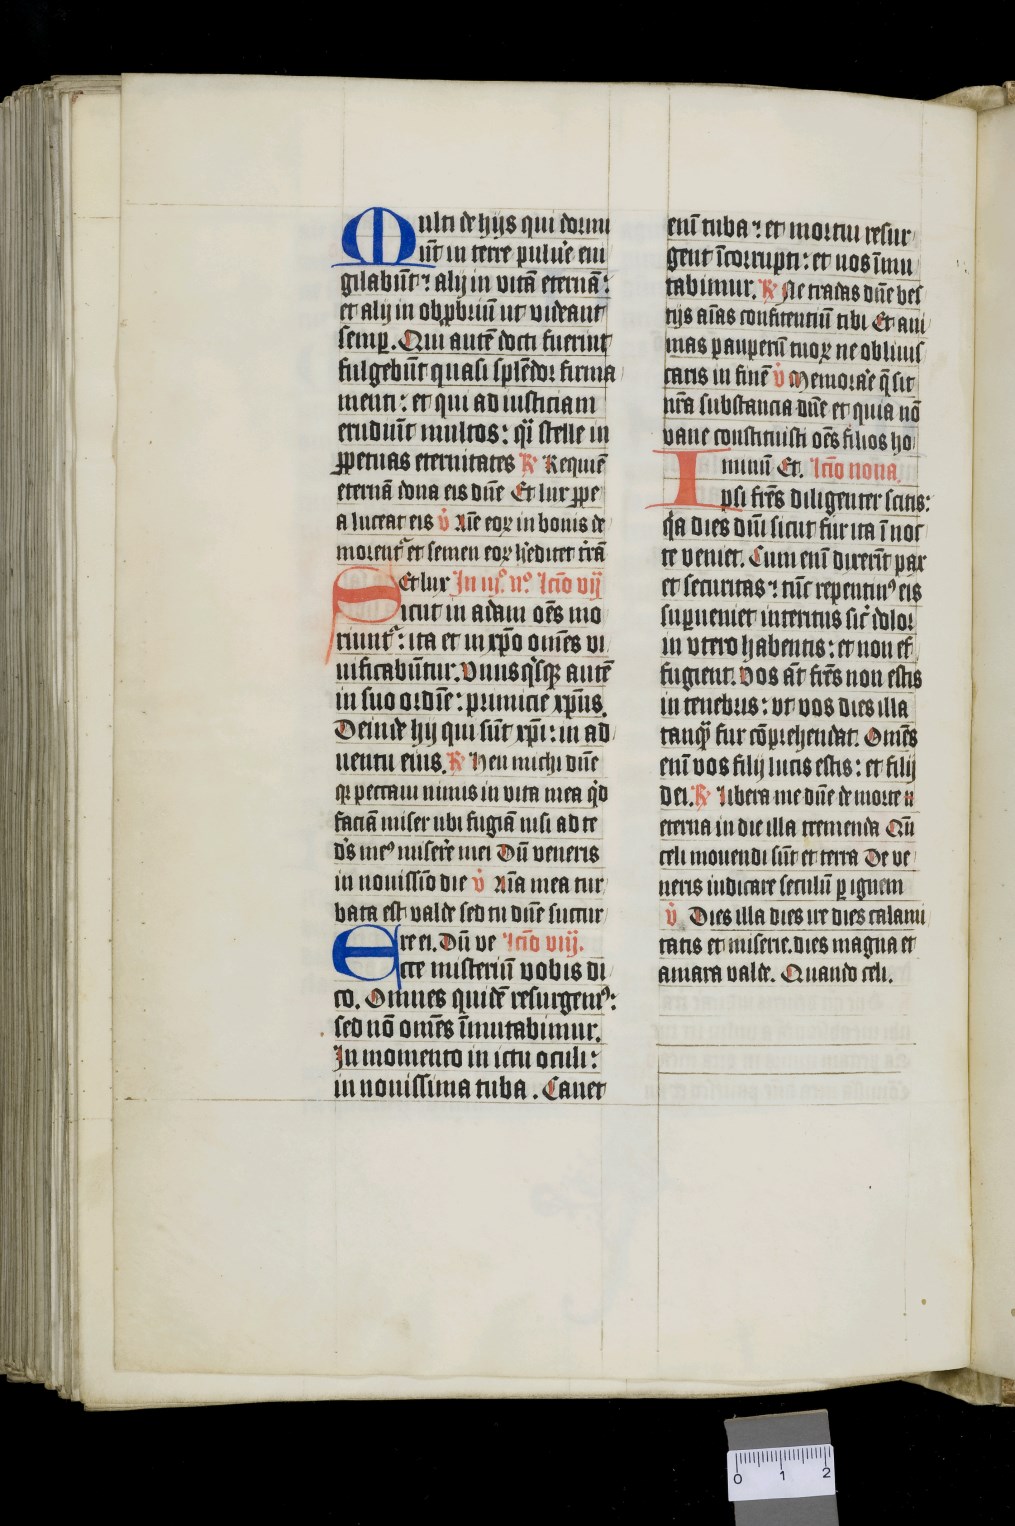 Multi de hijs qui dormi
ūt in terre puluꝰe eui
gilabūt: alij in vitā eternā:
et alij in obꝓbriū ut videant
semꝑ. Qui autē docti fuerint
fulgebūt quasi splēdor firma
menti: et qui ad iusticiam
erudiūt multos: q̄i stelle in
ꝑpetuas eternitates ℟ Requiē
eternā dona eis dn̄e Et lux ꝑpe
a luceat eis ℣ Aīe eoꝝ in bonis de
morent᷑ et semen eoꝝ h̓editet t̓rā
Et lux In iijº. nº. lcīo vij
Sicut in adam oēs mo
riunt᷑: ita et in xp̄o omēs vi
uificabūtur. Vnusqͥsqꝫ autē
in suo ordīe: primicie xp̄us.
Deinde hij qui sūt xp̄i: in ad
uentu eius. ℟ Heu michi dn̄e
qꝛ peccaui nimis in vita mea qͥd
faciā miser ubi fugiā nisi ad te
dꝰs meꝰ miserere mei Dū veneris
in nouissīo die ℣ Aīa mea tur
bata est valde sed tu dn̄e succur
re ei. Dū ve lcīo viij.
Ecce misteriū vobis di
co. Omnes quidē resurgemꝰ:
sed nō omēs īmutabimur.
In momento in ictu oculi:
in nouissima tuba. Canet
enī tuba: et mortui resur
gent īcorrupti: et nos īmu
tabimur. ℟ Ne tradas dn̄e bes
tijs aīas confitentiū tibi Et ani
mas pauperū tuoꝝ ne obliuis
caris in finē ℣ Memorare q̄ sit
nr̄a substancia dn̄e et quia nō
vane constituisti oēs filios ho
minū Et. lcīo nona.
Ipsi frēs diligenter scitis:
qͥa dies dn̄i sicut fur ita ī noc
te veniet. Cum enī dixerīt pax
et securitas: tūc repentinꝰ eis
suꝑueniet interitus sic̄ dolor
in vtero habentis: et non ef
fugient. Vos aūt frēs non estis
in tenebris: vt vos dies illa
tanqͣ fur cōprehendat. Omēs
enī vos filij lucis estis: et filij
dei. ℟ Libera me dn̄e de morte
eterna in die illa tremenda Qn̄
celi mouendi sūt et terra De ve
neris iudicare seculū ꝑ ignem
℣ Dies illa dies ire dies calami
tatis et miserie. dies magna et
amara valde. Quando celi.
0 1 2